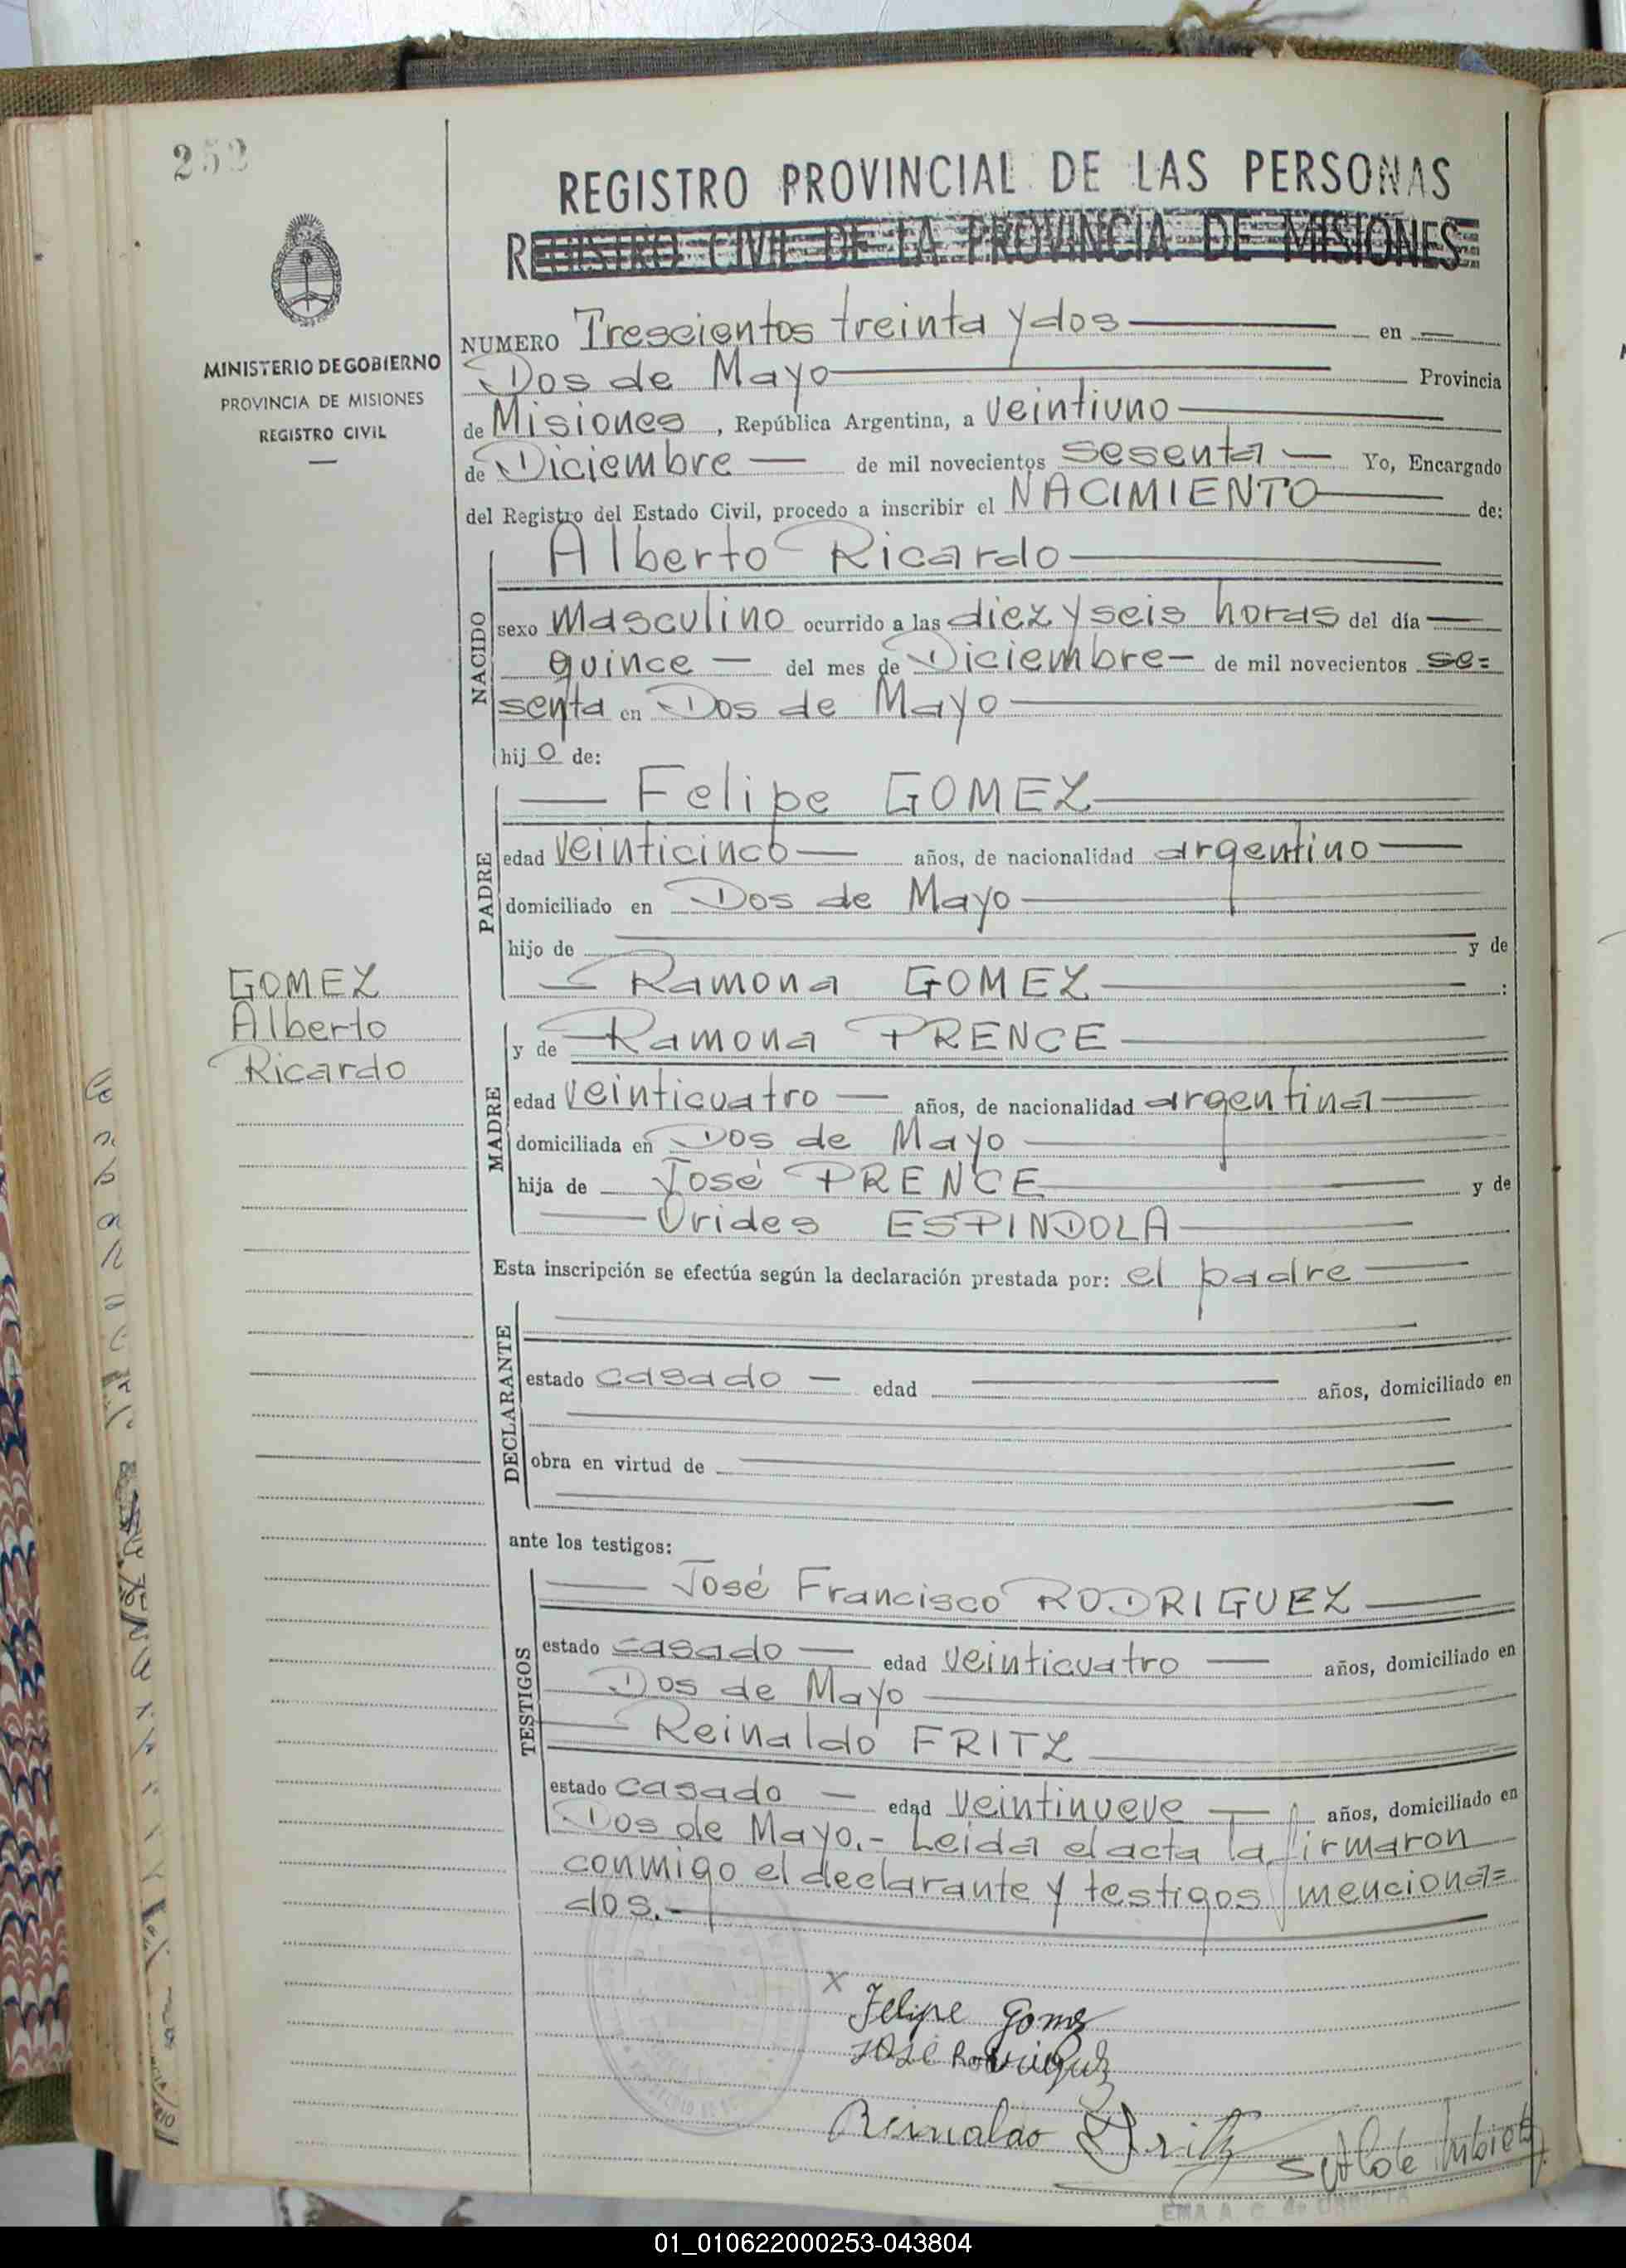 252
REGISTRO PROVINCIAL DE LAS PERSONAS
REGISTRO CIVIL DE LA PROVINCIA DE MISIONES
MINISTERIO DE GOBIERNO
PROVINCIA DE MISIONES
REGISTRO CIVIL
NUMERO Trescientos treinta y dos en
Dos de Mayo Provincia
de Misiones, República Argentina, a veintiuno
de Diciembre de mil novecientos sesenta Yo, Encargado
del Registro del Estado Civil, procedo a inscribir el NACIMIENTO de:
NACIDO
Alberto Ricardo
sexo masculino ocurrido a las diez y seis horas del día
quince del mes de Diciembre de mil novecientos se=
senta en Dos de Mayo
hijo de:
PADRE
Felipe GOMEZ
edad veinticinco años, de nacionalidad argentino
domiciliado en Dos de Mayo
hijo de y de
Ramona GOMEZ :
GOMEZ
Alberto
Ricardo
MADRE
y de Ramona PRENCE
edad veinticuatro años, de nacionalidad argentina
domiciliada en Dos de Mayo
hija de José PRENCE y de
Orides ESPINDOLA
Esta inscripción se efectúa según la declaración prestada por: el padre
DECLARANTE
estado casado edad años, domiciliado en
obra en virtud de
ante los testigos:
TESTIGOS
José Francisco RODRIGUEZ
estado casado edad veinticuatro años, domiciliado en
Dos de Mayo
Reinaldo FRITZ
estado casado edad veintinueve años, domiciliado en
Dos de Mayo.- Leída el acta la firmaron
conmigo el declarante y testigos menciona=
dos.-
x Felipe Gomez
José Rodriguez
Reinaldo Fritz
01_010622000253-043804